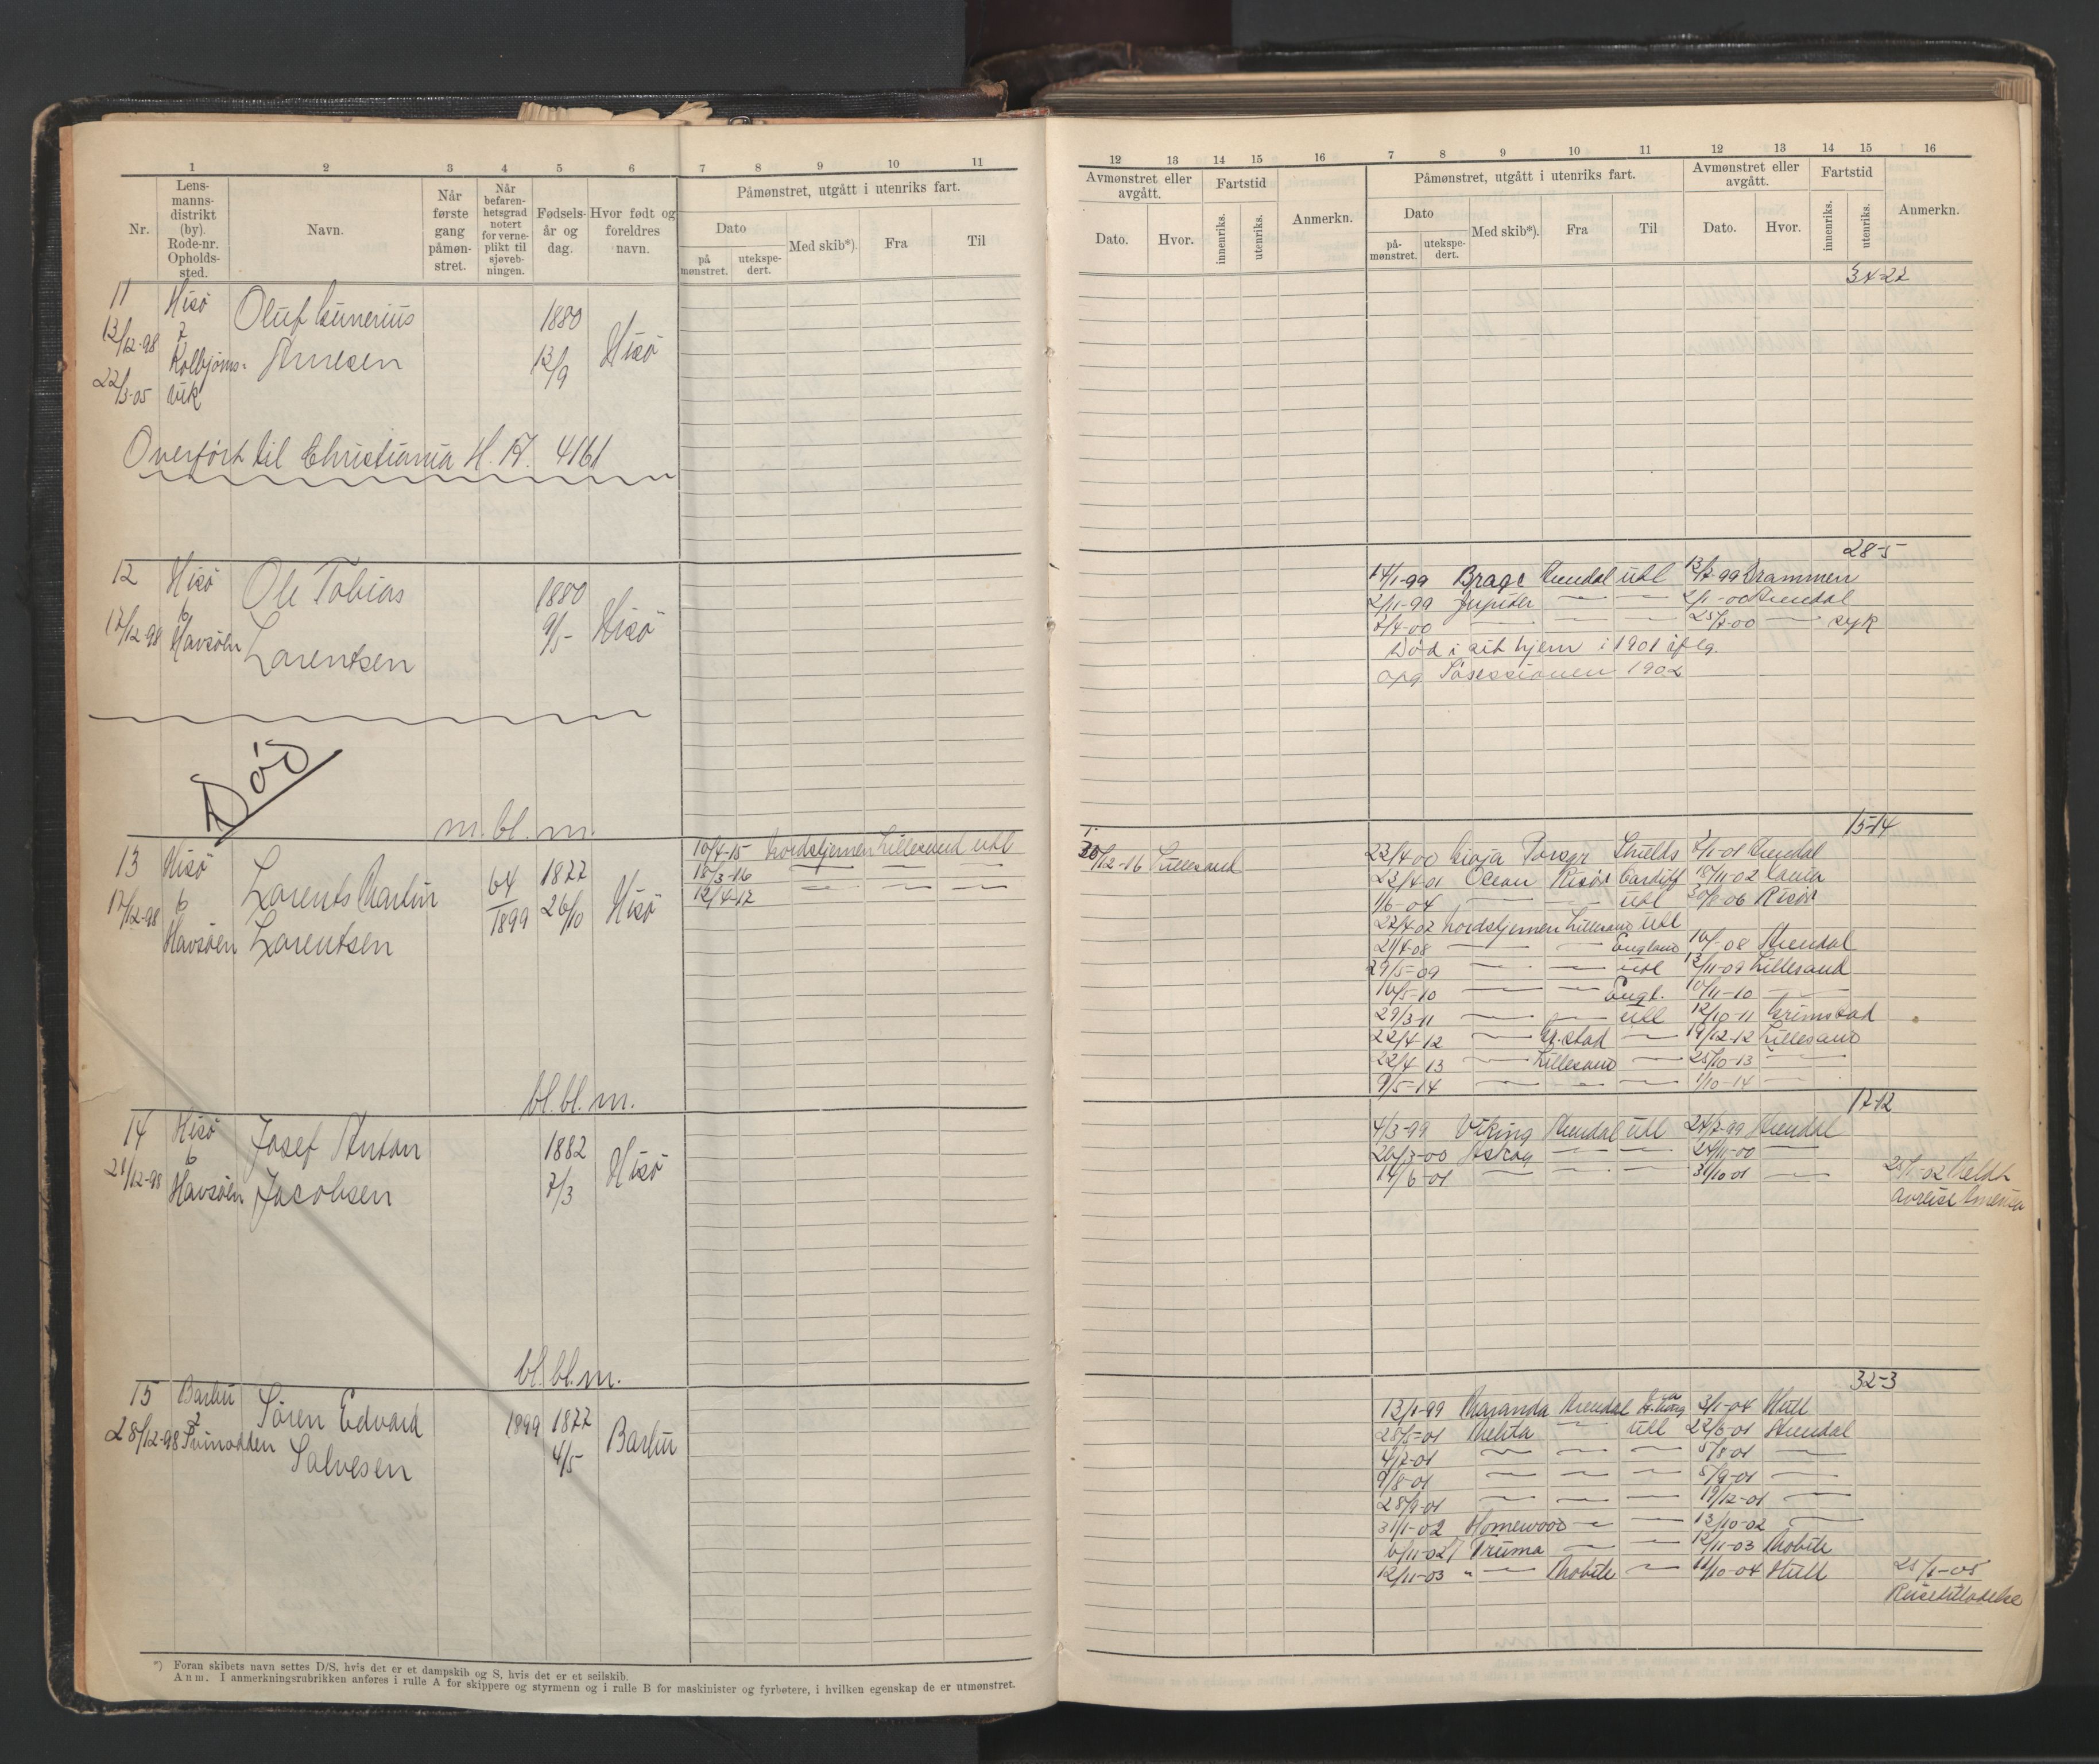 1 2 3 4 5 6 7 8 9 10 11
Nr.
Lens-
manns-
distrikt
(by).
Rode-nr.
Opholds-
sted.
Navn.
Når
første
gang
påmøn-
stret.
Når
befaren-
hetsgrad
notert
for verne-
plikt til
sjøveb-
ningen.
Fødsels-
år og
dag.
Hvor født og
foreldres
navn.
Påmønstret, utgått i utenriks fart.
Dato
på
mønstret.
utekspe-
dert.
Med skib*).
Fra
Til
11 Hisö Oluf Gunerius 1880 Hisö
13/12-98 7 Arnesen 13/9
Kolbjörns-
22/3-05 vik
Overfört til Christiania H. A. 4161
12 Hisö Ole Tobias 1880 Hisö
17/12-98 6 Lorentsen 9/5-
Havsöen
Död
m. bl. m.
13 Hisö Lorents Martin 64/1899 1877 Hisö
17/12-98 6 Lorentsen 26/10
Havsöen
10/4-15 Nordstjernen Lillesand utl
18/3-16 — — —
12/4-17 — — —
bl. bl. m.
14 Hisö Josef Anton 1882 Hisö
21/12-98 6 Jacobsen 7/3
Havsöen
bl. bl. m.
15 Barbu Sören Edvard 1899 1877 Barbu
28/12-98 2 Salvesen 4/5
Svinodden
*) Foran skibets navn settes D/S, hvis det er et dampskib og S, hvis det er et seilskib.
Anm. I anmerkningsrubrikken anføres i rulle A for skippere og styrmenn og i rulle B for maskinister og fyrbøtere, i hvilken egenskap de er utmønstret.
12 13 14 15 16 7 8 9 10 11 12 13 14 15 16
Avmønstret eller
avgått.
Dato.
Hvor.
Fartstid
innenriks.
utenriks.
Anmerkn.
Påmønstret, utgått i utenriks fart.
Dato
på-
mønstret.
utekspe-
dert.
Med skib*).
Fra
Til
Avmønstret eller
avgått.
Dato.
Hvor.
Fartstid
innenriks.
utenriks.
Anmerkn.
34-22
28-5
14/1-99 Brage Arendal utl 12/7-99 Drammen
2/11-99 Jupiter — — 2/1-00 Arendal
7/4-00 — — — 25/7-00 — syk
Död i sit hjem i 1901 iflg.
opg Sösessionen 1902
15-14
30/12-16 Lillesand
22/4-00 Porsgr Shields 7/1-01 Arendal
23/4-01 Ocean Risör Cardiff 18/11-02
1/6-04 — — utl Risör
22/4-07 Nordstjernen Lillesand utl
21/4-08 — — England 08 Arendal
29/5-09 — — utl 13/11-09 Lillesand
10/5-10 — — Engl. 10/11-10 —
29/3-11 — — utl 12/10-11 Grimstad
22/4-12 — Gr.stad — 19/12-12 Lillesand
22/4-13 — Lillesand — 25/10-13 —
9/5-14 — — — 1/10-14 —
17-12
4/3-99 Viking Arendal utl 24/7-99 Arendal
20/3-00 Askog — — 24/11-00 —
14/6-01 — — — 31/10 01 —
25/1-02 Meldt
avreise Amerika
32-3
13/1-99 Arendal 3/1-04 Hull
28/5-01 Melita — utl 22/6-01 Arendal
4/7-01 — — — 5/8-01 —
9/8-01 — — — 5/9-01 —
28/9-01 — — — 19/12-01 —
31/1-02 Homewood — — 13/10-02 —
6/11-02 Truma — — 12/11-03 Mobile
12/11-03 " — Mobile — 11/10-04 Hull
25/1-05
Reisetilladelse